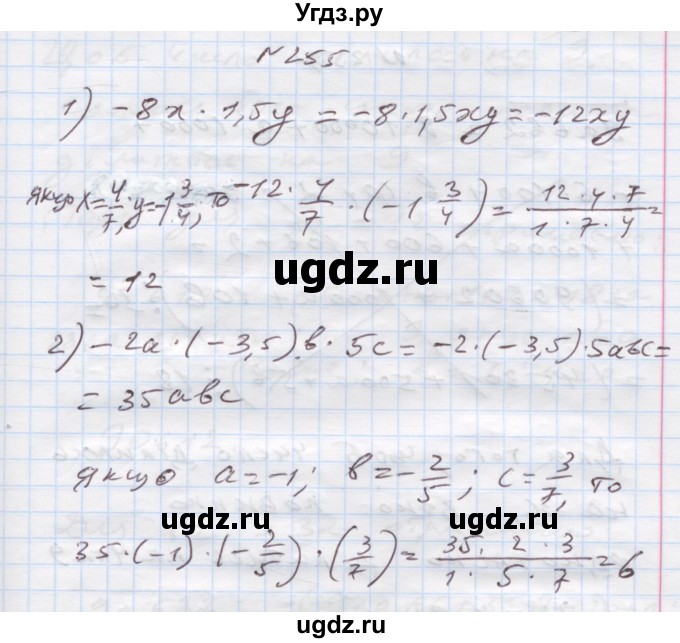 Угдз.ру
№255
1) -8x · 1,5y = -8·1,5xy = -12xy
якщо x=4/7, y=-1 3/4, то -12 · 4/7 · (-1 3/4) = 12·4·7/1·7·4 =
= 12
ugdz.ru
2) -2a·(-3,5)в·5c = -2·(-3,5)·5авс =
= 35авс
якщо a=-1; в=-2/5; c=3/7, то
ugdz.ru ugdz.ru
35·(-1)·(-2/5)·(3/7) = 35·2·3/1·5·7 = 6
ugdz.ru ugdz.ru